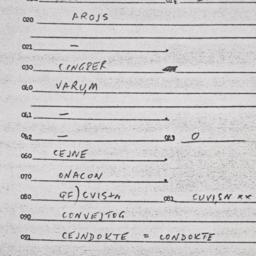 020 AROJS
021 —
030 CINGPER
040 VARUM
041 —
042 — 043 0
060 CEJNE
070 ONACON
080 082
090 CONVEJTOG
091 CEJNDOKTE = CONDOKTE